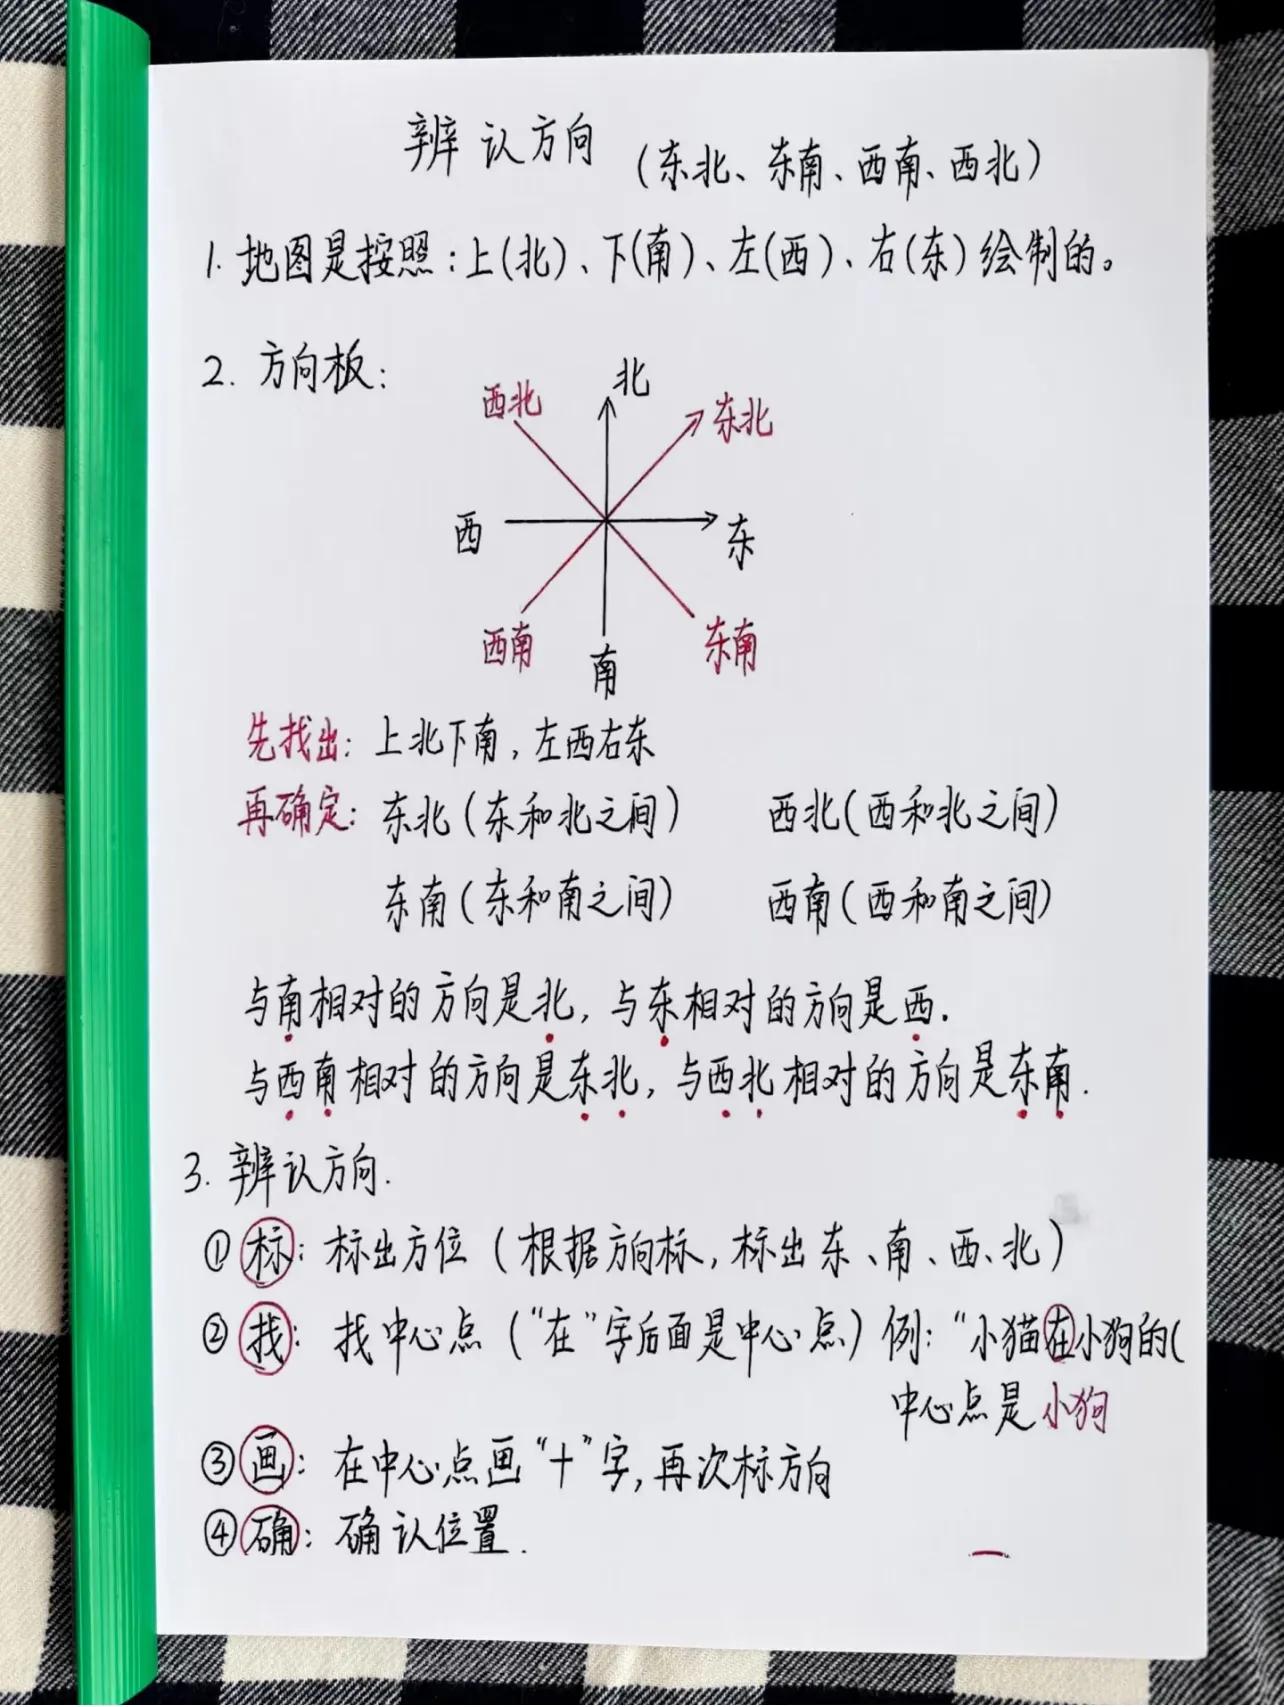 辨认方向 (东北、东南、西南、西北)
1. 地图是按照:上(北)、下(南)、左(西)、右(东)绘制的。
2. 方向板:
北
西北 东北
西 东
西南 东南
南
先找出: 上北下南,左西右东
再确定: 东北(东和北之间) 西北(西和北之间)
东南(东和南之间) 西南(西和南之间)
与南相对的方向是北,与东相对的方向是西.
与西南相对的方向是东北,与西北相对的方向是东南.
3. 辨认方向.
①标: 标出方位(根据方向标,标出东、南、西、北)
②找: 找中心点("在"字后面是中心点)例:"小猫在小狗的(
中心点是小狗
③画: 在中心点画"十"字,再次标方向
④确: 确认位置.